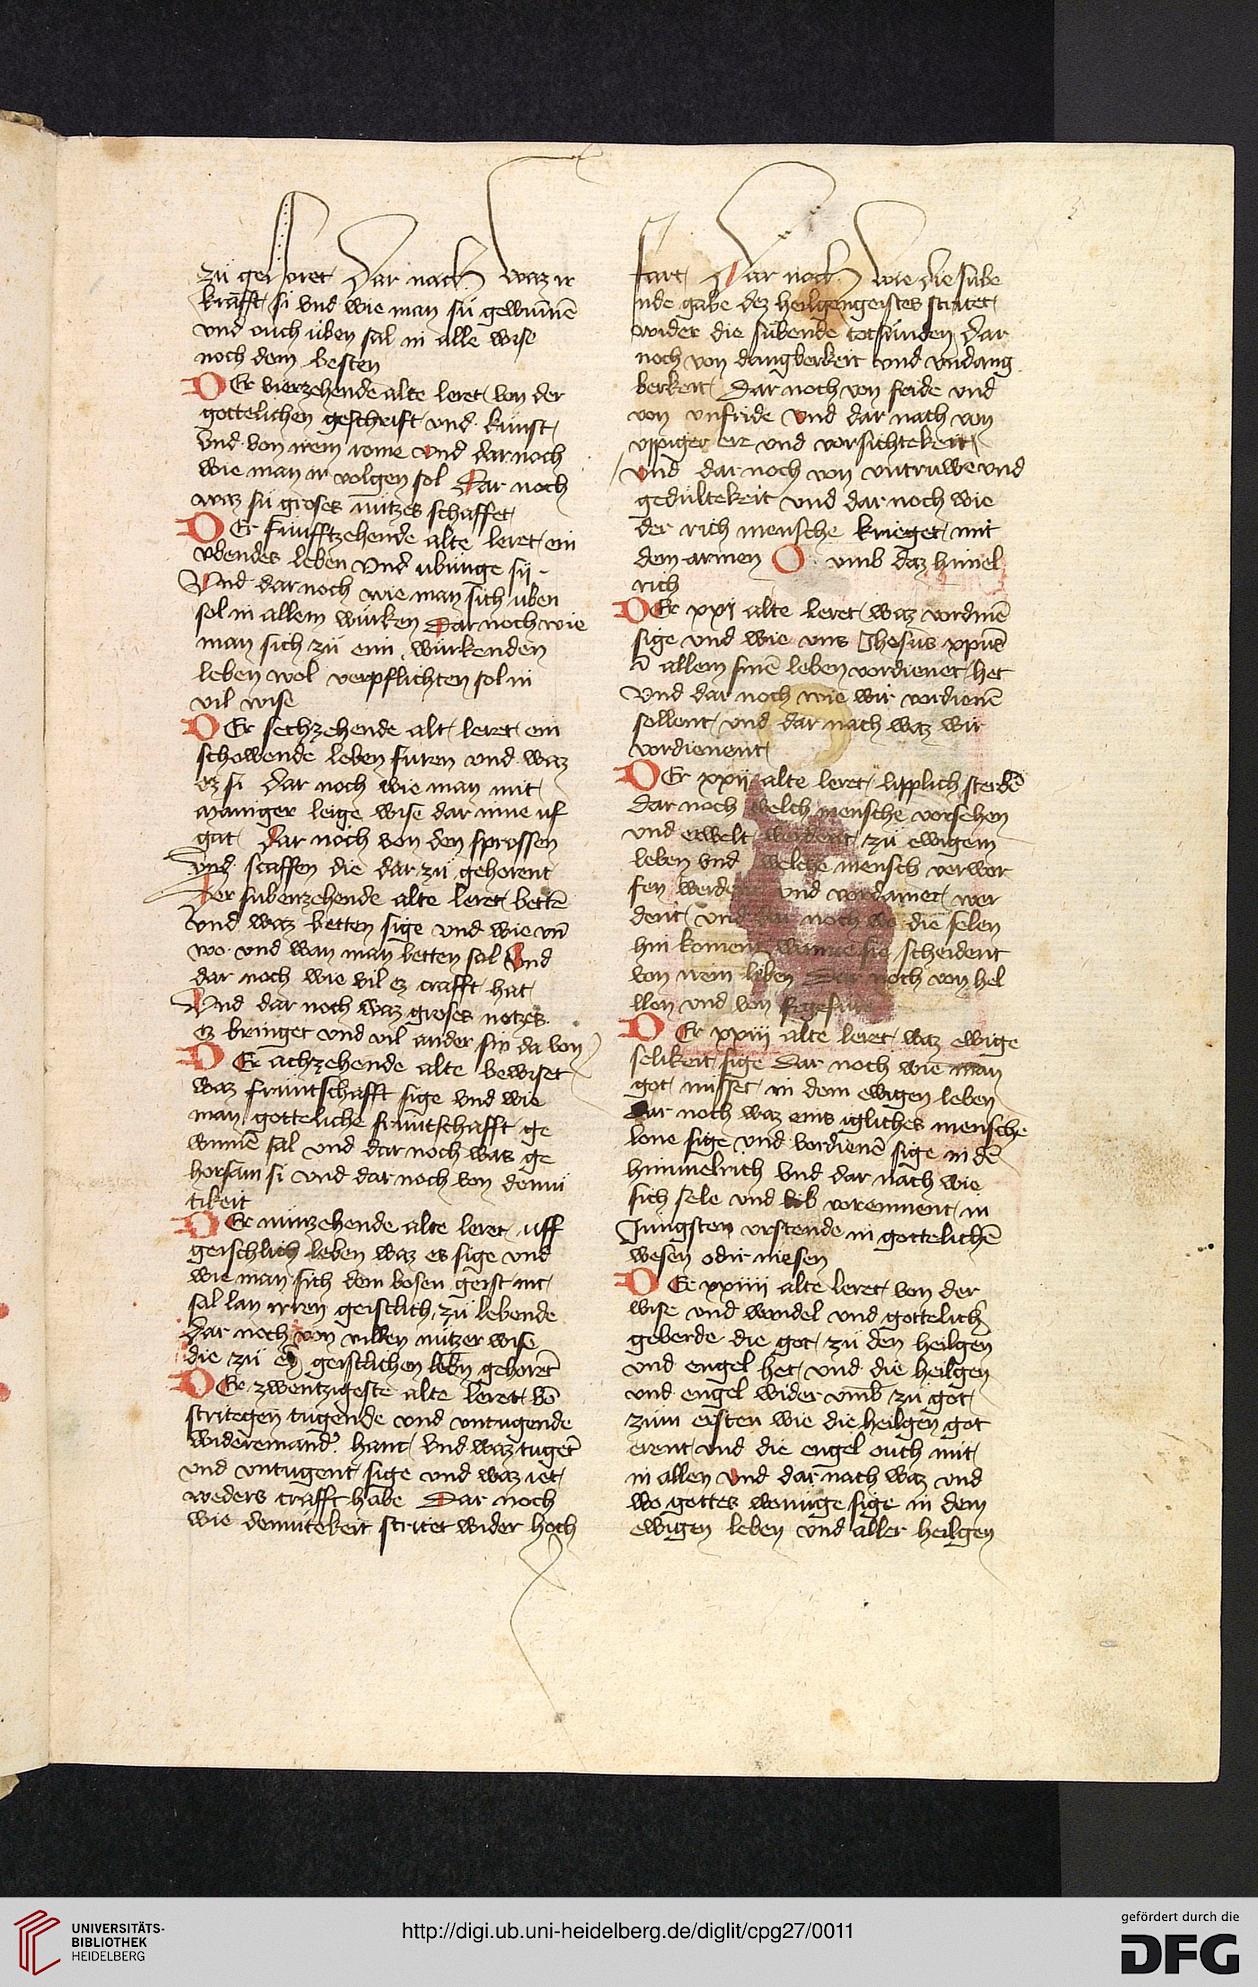 zu gehoret Dar nach waz ir
krafft si vnd wie man sü gewinnē
vnd ouch üben sal in alle wise
noch dem besten
DEr vierzehende alte leret von der
gottelichen geschrift vnd kunst
vnd von irem rome vnd dar noch
wie man ir volgen sol Dar noch
waz sü groses nutzes schaffet
DEr funfftzehende alte leret ein
vbendes leben vnd ubunge si
Vnd dar noch wie man sich uben
sol in allem würken Dar noch wie
man sich zü eim würkenden
leben wol verpflichten sol in
vil wise
DEr sechzehende alt leret ein
schowende leben furen vnd waz
ez si dar noch wie man mit
maniger leige wise dar inne uf
gat Dar noch von den sprossen
vnd staffen die dar zü gehorent
Der subenzehende alte leret bettē
vnd waz betten sige vnd wie vn̄
wo vnd wan man betten sol Vnd
dar noch wie vil ez crafft hat
Vnd dar noch waz groses notzes
ez bringet vnd vil ander sin da von
DEr achzehende alte bewiset
waz fruntschafft sige vnd wie
man gotteliche fruntschafft ge
winnē sal vnd dar noch was ge
horsam si vnd dar noch von demü
tikeit
DEr nunzehende alte leret uff
geischlich leben waz es sige vnd
wie man sich dem bosen geist nit
sal lan irren geistlich zü lebende
Dar noch von villen nutzer wise
die zü geistlichen lebn gehoret
DEr zwentzigeste alte leret vō
stritegen tugende vnd vntugende
wideremander hant vnd waz tuget
vnd vntugent sige vnd waz iet
weders crafft habe Dar noch
wie demutekeit stritet wider hoch
fart Dar noch wie die sube
nde gabe dez heilgengeistes stritet
wider die subende totsunden Dar
noch von dangberkeit vnd vndang
berkeit Dar noch von fride vnd
von vnfride vnd dar nach von
vppiger ere vnd vorsichtekeit
vnd dar noch von vntruwe vnd
gedultekeit vnd dar noch wie
der rich mensche krieget mit
dem armen O vmb daz himel
rich
DEr xxi alte leret waz vordinē
sige vnd wie vns Jhesus xpus
ī allem sinē leben vordienet het
Vnd dar noch wie wir vordienē
sollent vnd dar nach waz wir
vordienent
DEr xxii alte leret lipplich sterbē
Dar noch welch mensche vorsehen
vnd erwelt werdent zü ewigem
leben vnd welche mensch verwor
fen werdent vnd vordamet wer
dent vnd dar noch wo die selen
hin koment wanne sie scheident
von irem liben Dar noch von hel
llen vnd von fegefure
DEr xxiii alte leret waz ewige
selikeit sige Dar noch wie man
got nisset in dem ewigen leben
Dar noch waz eins igliches mensche
lone sige vnd vordienē sige in dē
himmelrich vnd dar nach wie
sich sele vnd lib voreinnent in
Jungsten vrstende in gottelichē
wesen odir niesen
DEr xxiiii alte leret von der
wise vnd wandel vnd gottelich
geberde die got zü den heilgen
vnd engel het vnd die heilgen
vnd engel wider vmb zu got
zum ersten wie die heilgen got
erent vnd die engel ouch mit
in allen vnd dar nach waz vnd
wo gottes wonunge sige in dem
ewigen leben vnd aller heilgen
UNIVERSITÄTS-
BIBLIOTHEK
HEIDELBERG
http://digi.ub.uni-heidelberg.de/diglit/cpg27/0011
gefördert durch die
DFG